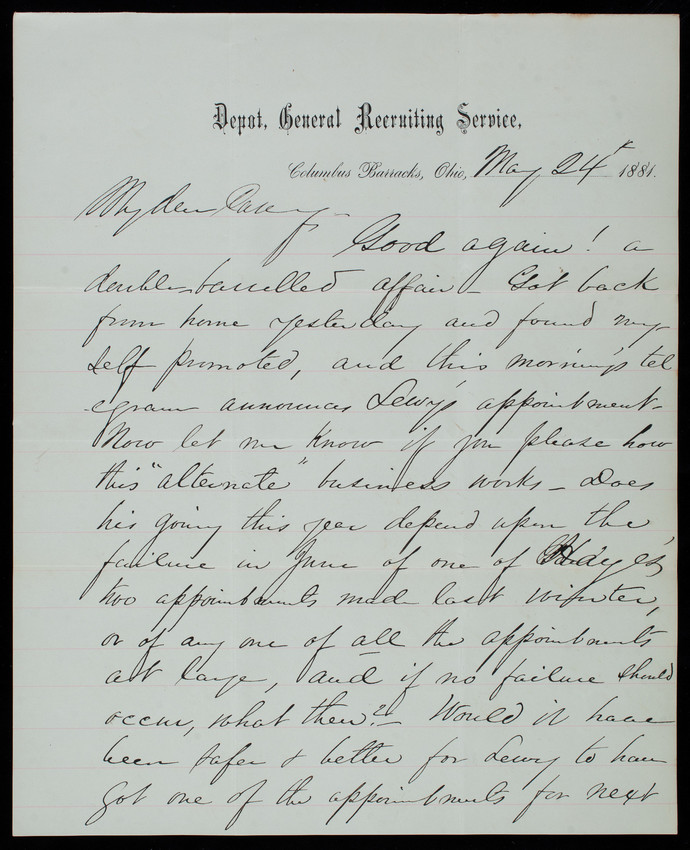 Depot, General Recruiting Service,
Columbus Barracks, Ohio, May 24th 1881.
My dear Casey,
Good again! a
double-barrelled affair – Got back
from home yesterday and found my-
self promoted, and this morning's tel
egram announces Lewy's appointment–
Now let me know if you please how
this "alternate" business works – Does
his going this year depend upon the
failure in June of one of
two appointments made last winter,
or of any one of all the appointments
at large, and if no failure should
occur, what then?– Would it have
been safer & better for Lewy to have
got one of the appointments for next